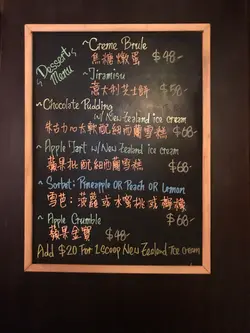 Dessert Menu
~ Creme Brule
焦糖燉蛋 $48-
~ Tiramisu
意大利芝士餅 $58-
~ Chocolate Pudding
w/ New zealand ice cream
朱古力心太軟配紐西蘭雪糕 $68-
~ Apple Tart w/ New Zealand ice cream
蘋果批配紐西蘭雪糕 $68-
~ Sorbet: Pineapple OR Peach OR Lemon
雪色: 菠蘿 或 水蜜桃 或 檸檬
~ Apple Crumble $68-
蘋果金寶 $48-
Add $20 For 1 Scoop New Zealand Ice Cream